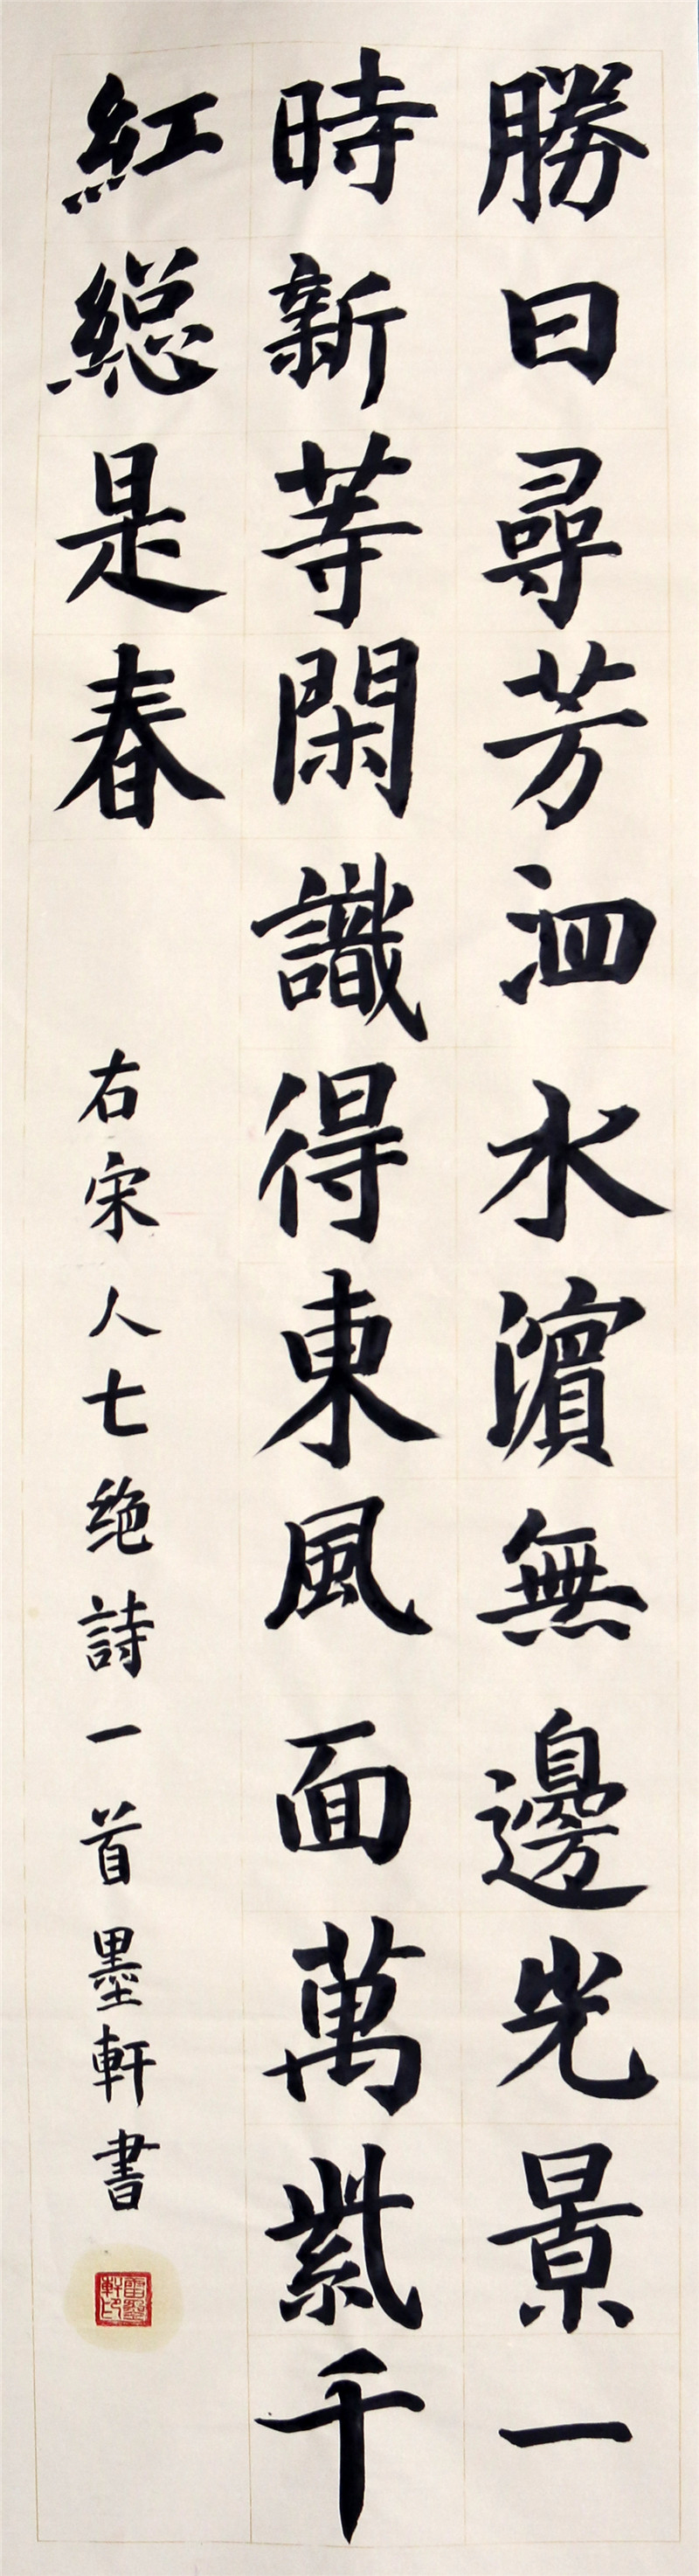 勝日尋芳泗水濵無邊光景一
時新等閑識得東風面萬紫千
紅總是春
右宋人七絶詩一首墨軒書